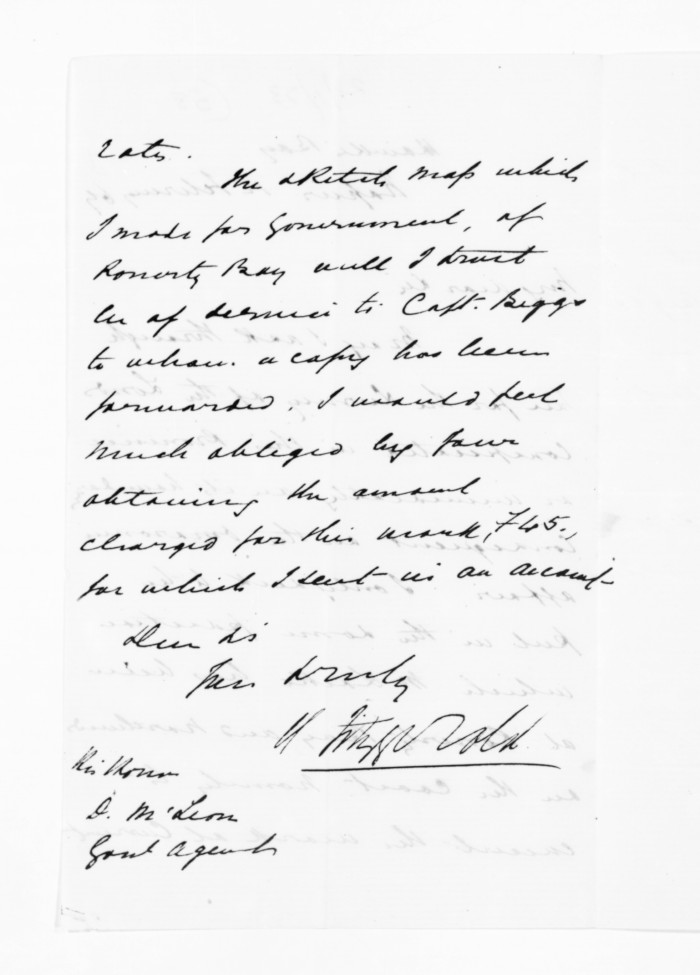 rates.
The sketch map which
I made for Government, of
Poverty Bay will I trust
be of service to Capt. Biggs
to whom a copy has been
forwarded. I would feel
much obliged by your
obtaining the amount
charged for this work, £45.,
for which I sent in an account
Dear Sir
Yours truly
Fitzgerald
His Honor
D. McLean
Govt Agent